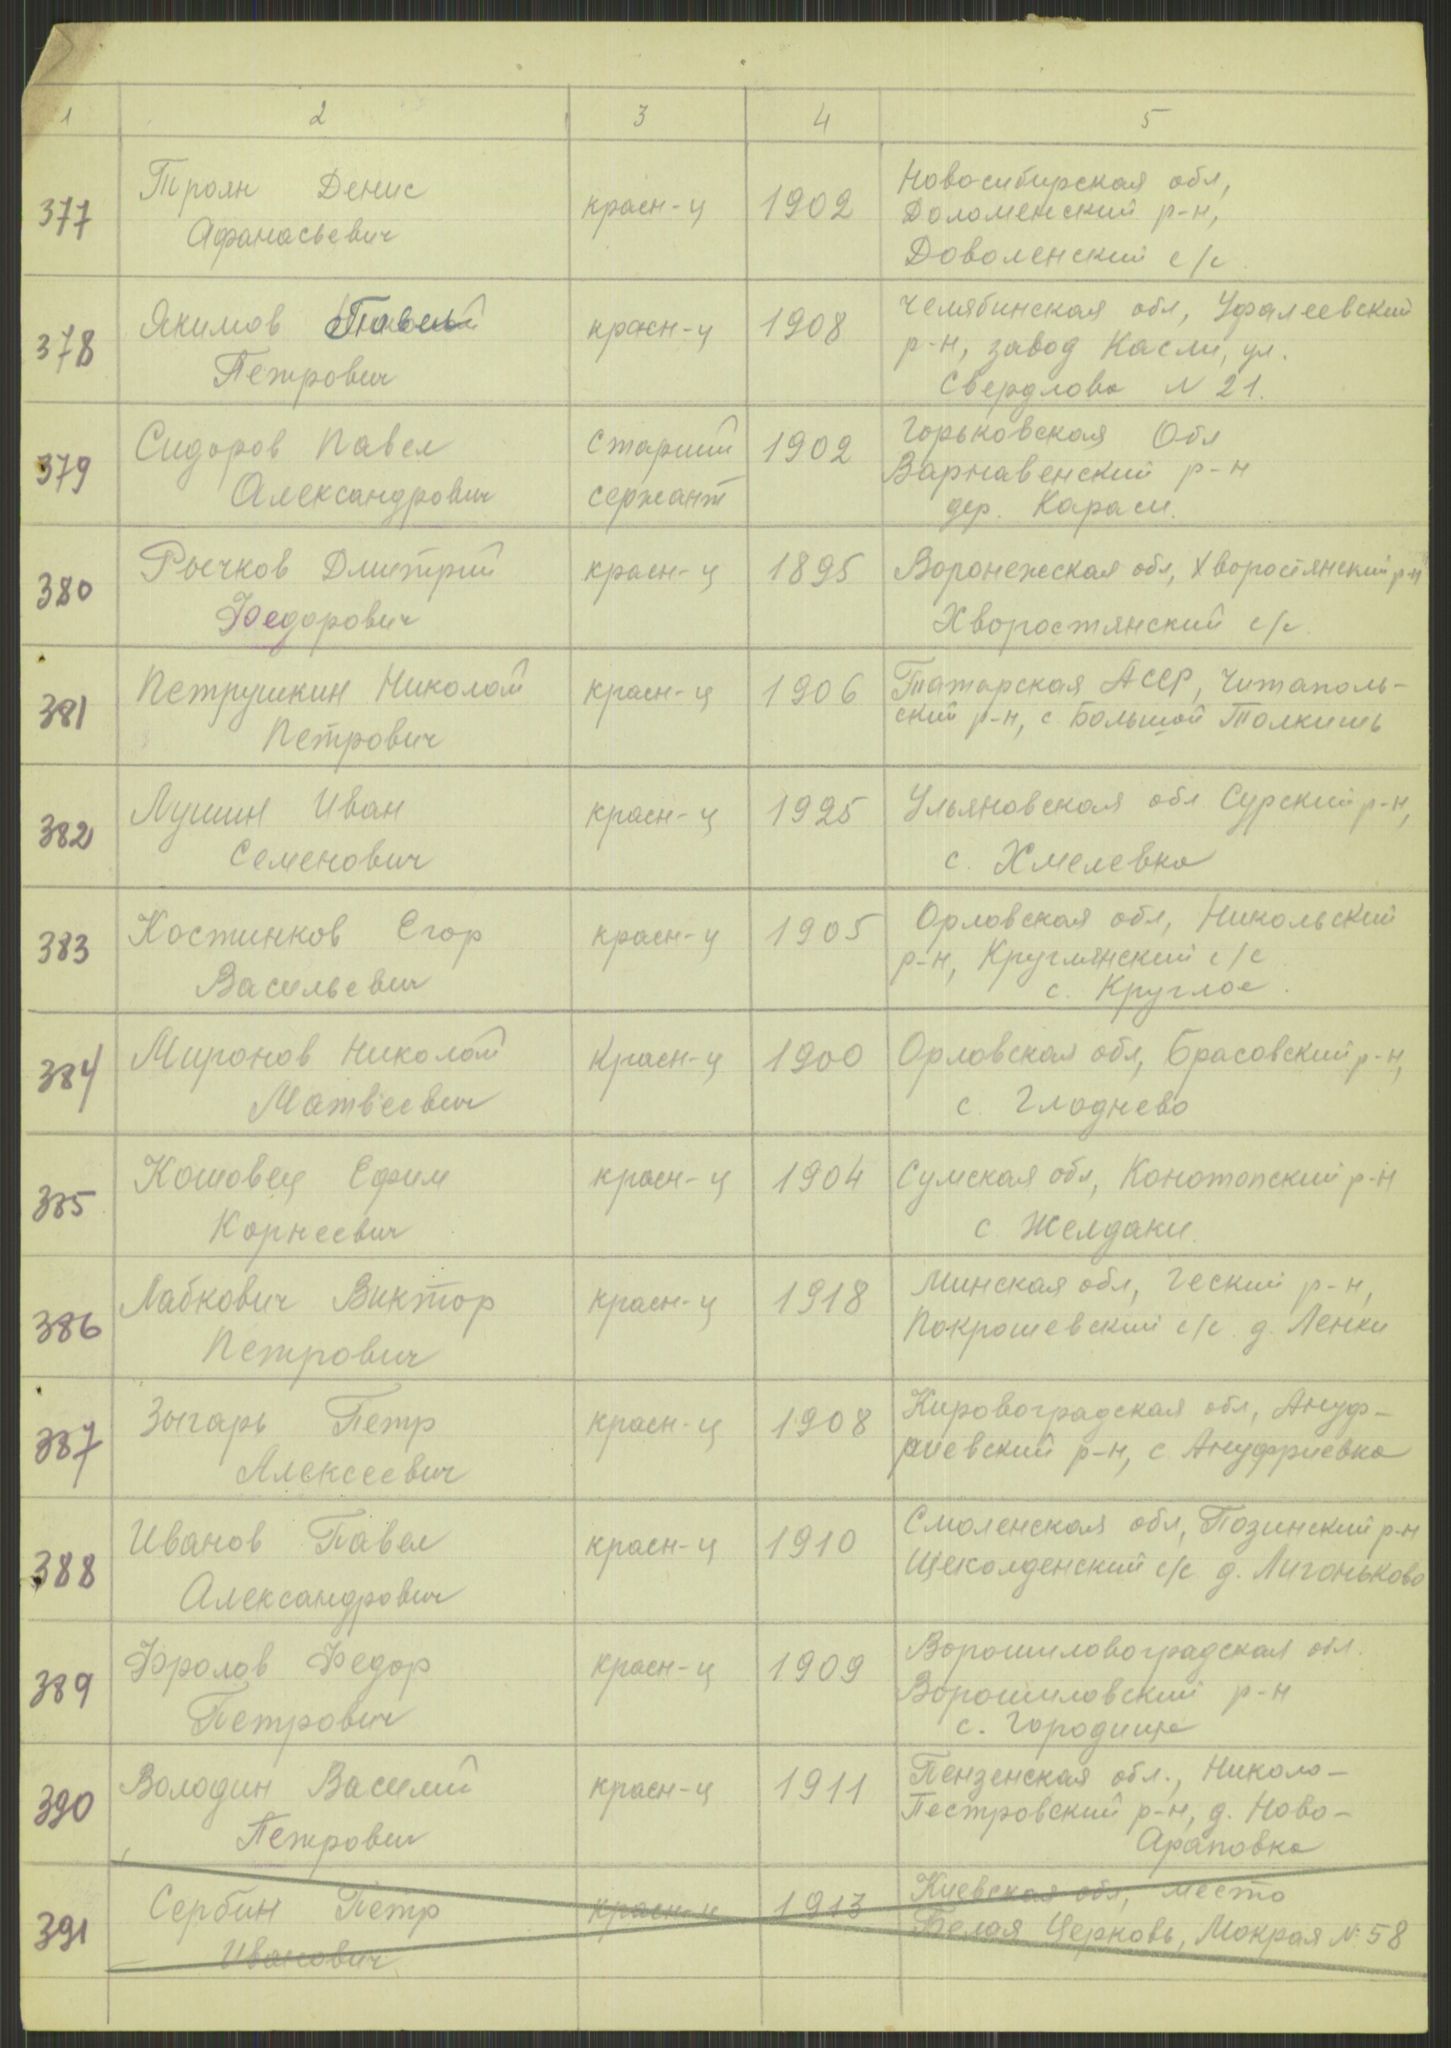 1 2 3 4 5
377 Троян Денис красн-ц 1902 Новосибирская обл,
Афанасьевич Доломенский р-н,
Доволенский с/с
378 Якимов Павел красн-ц 1908 Челябинская обл, Уфалеевский
Петрович р-н, завод Касли, ул.
Свердлова N 21.
379 Сидоров Павел Старший 1902 Горьковская Обл
Александрович сержант Варнавенский р-н
дер. Караси.
380 Рычков Дмитрий красн-ц 1895 Воронежская обл, Хворостянский р-н
Федорович Хворостянский с/с.
381 Петрушкин Николай красн-ц 1906 Татарская АССР, Читаполь-
Петрович ский р-н, с Большой Толкишь
382 Лушин Иван красн-ц 1925 Ульяновская обл Сурский р-н,
Семенович с. Хмелевка
383 Костинков Егор красн-ц 1905 Орловская обл, Никольский
Васильевич р-н, Круглянский с/с
с. Круглое.
384 Миронов Николай Красн-ц 1900 Орловская обл, Брасовский р-н,
Матвеевич с. Гладнево
385 Кошовец Ефим красн-ц 1904 Сумская обл, Конотопский р-н
Корнеевич с Желдаки.
386 Лабкович Виктор красн-ц 1918 Минская обл, Геский р-н,
Петрович Покрошевский с/с. д. Ленки
387 Зыгарь Петр красн-ц 1908 Кировоградская обл, Ануф-
Алексеевич риевский р-н, с Ануфриевка
388 Иванов Павел красн-ц 1910 Смоленская обл, Позинский р-н
Александрович Щеколденский с/с д. Лигоньково
389 Фролов Федор красн-ц 1909 Ворошиловоградская обл.
Петрович Ворошиловский р-н
с. Городище
390 Володин Василий красн-ц 1911 Пензенская обл., Николо-
Петрович Пестровский р-н, д. Ново-
Араповка
391 Сербин Петр красн-ц 1913 Киевская обл, место
Иванович Белая Церковь, Мокрая № 58